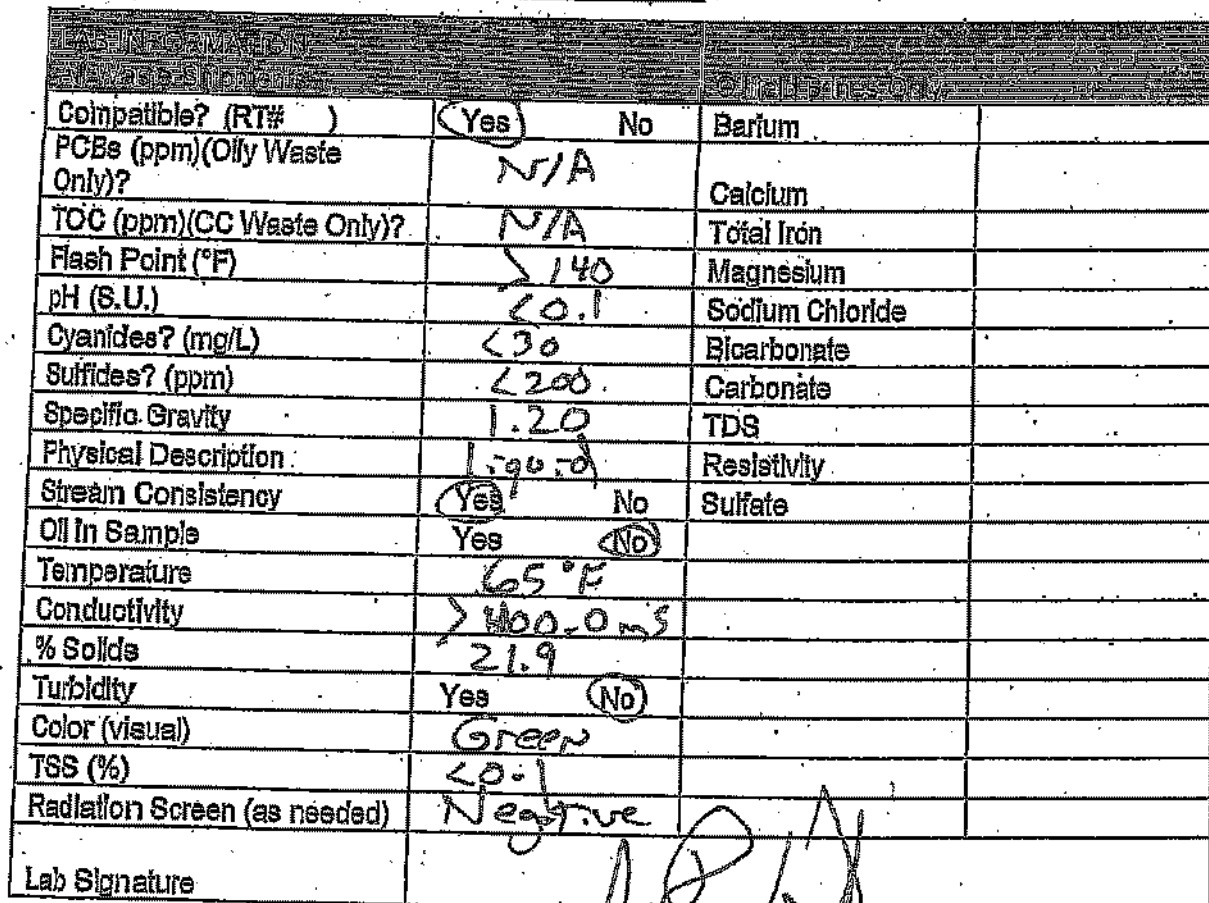 LAB INFORMATION
All Waste Shipments
Compatible? (RT# ) Yes No Barium
PCBs (ppm)(Oily Waste
Only)? N/A Calcium
TOC (ppm)(CC Waste Only)? N/A Total Iron
Flash Point (°F) >140 Magnesium
pH (S.U.) <0.1 Sodium Chloride
Cyanides? (mg/L) <30 Bicarbonate
Sulfides? (ppm) <200 Carbonate
Specific Gravity 1.20 TDS
Physical Description Liquid Resistivity
Stream Consistency Yes No Sulfate
Oil in Sample Yes No
Temperature 65°F
Conductivity >400.0 mS
% Solids 21.9
Turbidity Yes No
Color (visual) Green
TSS (%) <0.1
Radiation Screen (as needed) Negative
Lab Signature